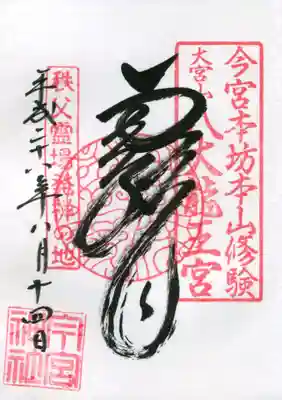 今宮本坊本山修験
大宮山
八大龍王宮
秩父霊場発祥の地
平成二十八年八月十四日
今宮
神社